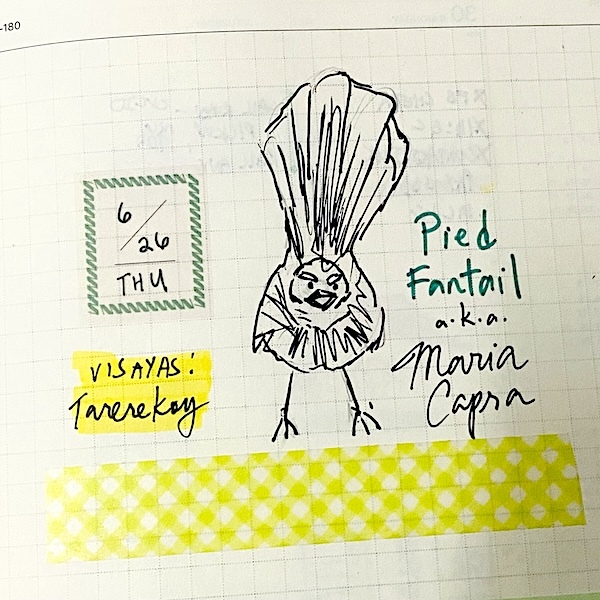 -180
6/26
THU
Pied
Fantail
a.k.a.
Maria
Capra
VISAYAS:
Tarerekoy